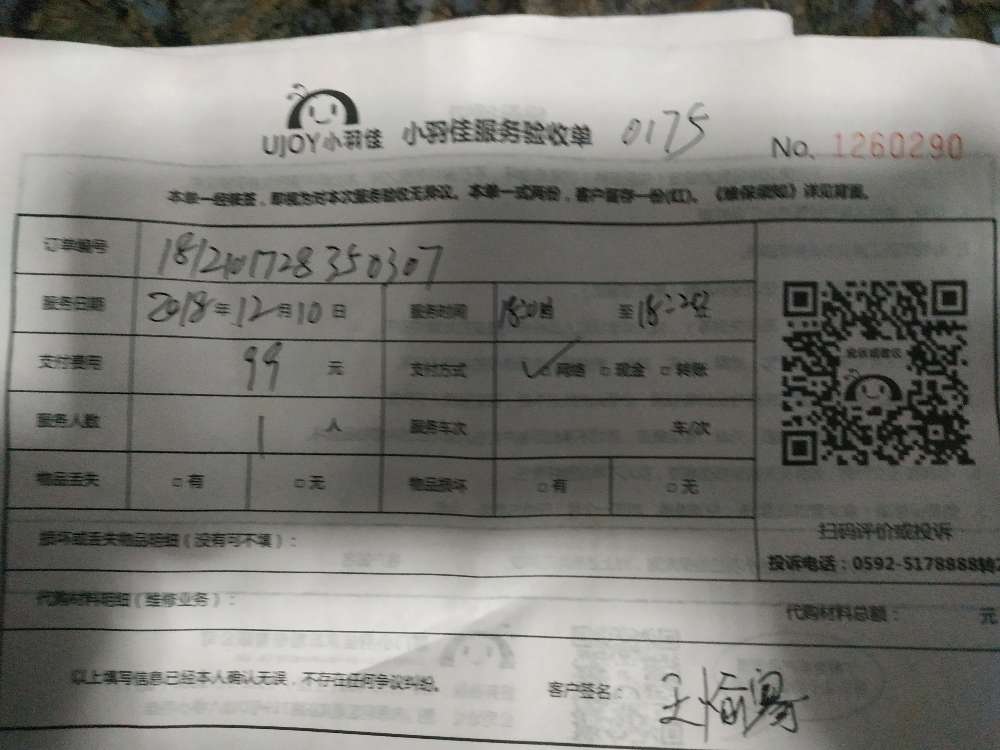 UJOY小羽佳 小羽佳服务验收单 0175 No. 1260290
本单一经接签，即视为对本次服务验收无异议。本单一式两份，客户留存一份(红)。《维保须知》详见背面。
订单编号 1812101728350307
服务日期 2018年12月10日 服务时间 至
支付费用 99 元 支付方式 ✓□网络 □现金 □转账
服务人数 1 人 服务车次 车/次
物品丢失 □有 □无 物品损坏 □有 □无
扫码评价或投诉
损坏或丢失物品明细（没有可不填）：
投诉电话：0592-5178888转2
代购材料明细（维修业务）： 代购材料总额： 元
以上填写信息已经本人确认无误，不存在任何争议纠纷。 客户签名： 王